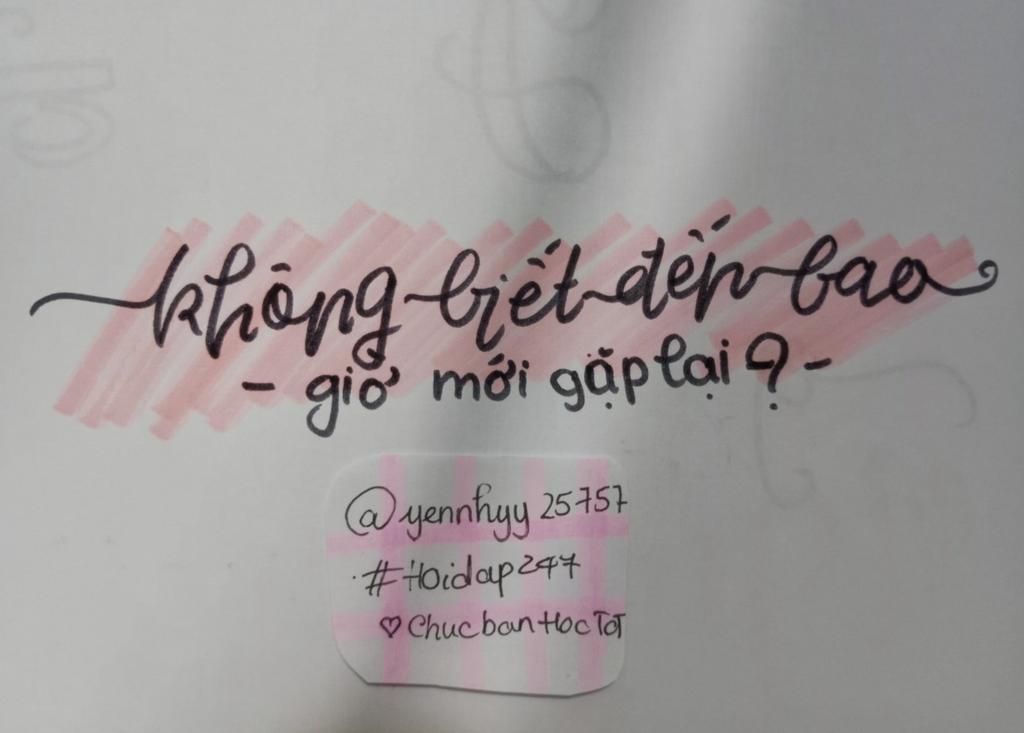 không biết đến bao
- giờ mới gặp lại? -
@yennhyy25757
#Hoidap247
♡ChucbanHocTốT